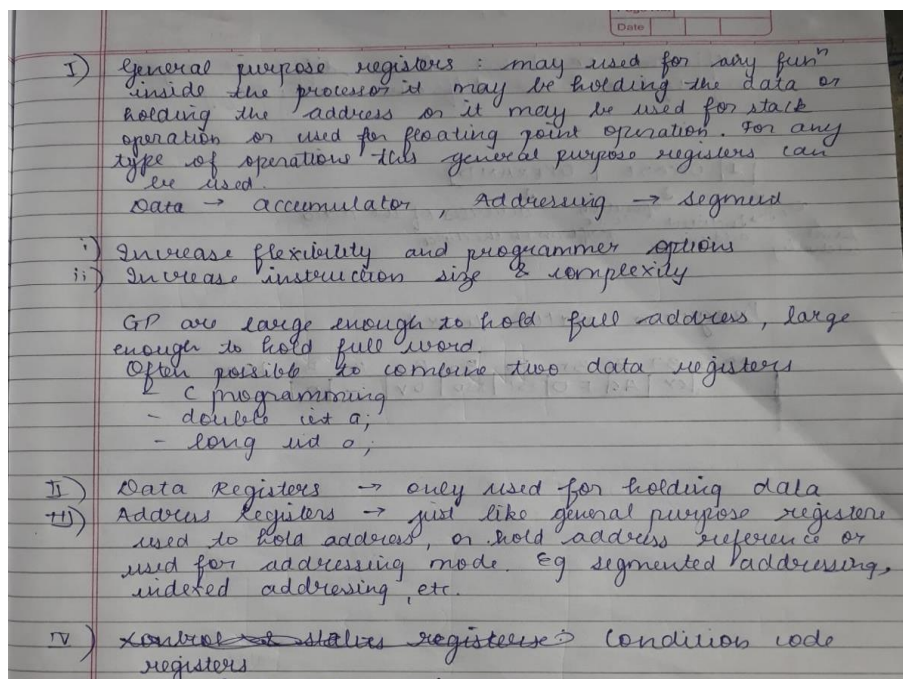 Date
I) General purpose registers : may used for any funⁿ
inside the processor it may be holding the data or
holding the address or it may be used for stack
operation or used for floating point operation. For any
type of operations this general purpose registers can
be used.
Data → accumulator, Addressing → segment
i) Increase flexibility and programmer options
ii) Increase instruction size & complexity
GP are large enough to hold full address, large
enough to hold full word.
Often possible to combine two data registers
- C programming
- double int a;
- long int a;
II) Data Registers → only used for holding data
III) Address Registers → just like general purpose registers
used to hold address, or hold address reference or
used for addressing mode. Eg segmented addressing,
indexed addressing, etc.
IV) Control & status registers :) Condition code
registers